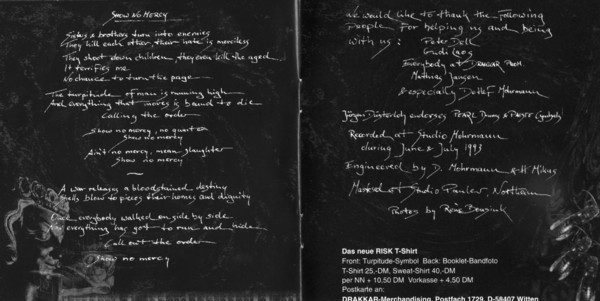 SHOW NO MERCY
Sisters & brothers turn into enemies
They kill each other, their hate is merciless
They shoot down children, they even kill the aged
It terrifies me
No chance to turn the page
The turpitude of man is running high
And everything that moves is bound to die
Calling the order
Show no mercy, no quarter
Show no mercy
Ain't no mercy, mean slaughter
Show no mercy
A war releases a bloodstained destiny
Shells blow to pieces their homes and dignity
Once everybody walked on side by side
Now everything has got to run and hide
Call out the order
Show no mercy
We would like to thank the following
People for helping us and being
with us: Peter Dell
Everybody at DRAKKAR Prom.
Mathias Jansen
& especially Detlef Mohrmann
Jürgen Düsterloh endorses PEARL Drums & PAISTE Cymbals
Recorded at Studio Mohrmann
during June & July 1993
Engineered by D. Mohrmann & H. Mikus
at Studio Pauler, Northeim
Photos by René
Das neue RISK T-Shirt
Front: Turpitude-Symbol Back: Booklet-Bandfoto
T-Shirt 25,-DM, Sweat-Shirt 40,-DM
per NN + 10.50 DM Vorkasse + 4.50 DM
Postkarte an:
DRAKKAR-Merchandising, Postfach 1729, D-58407 Witten